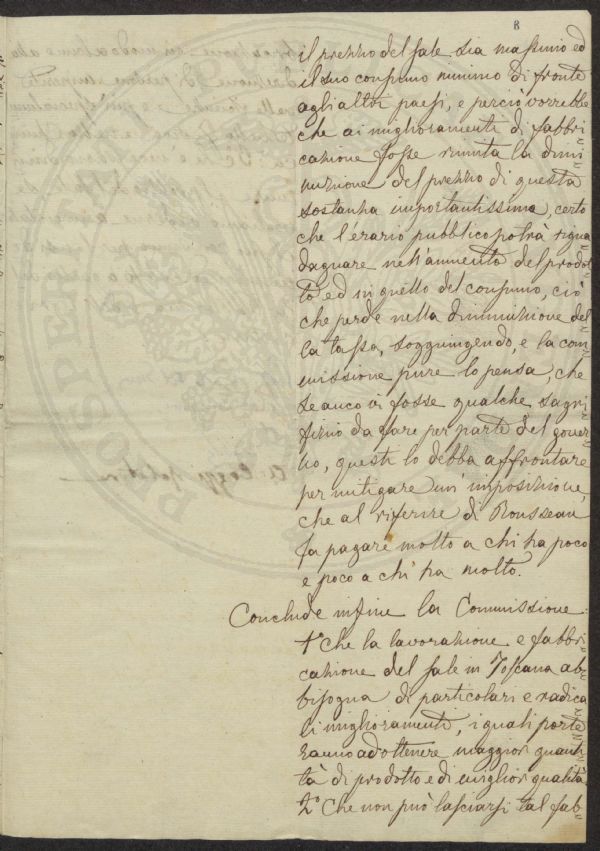 8
il prezzo del sale sia massimo ed
il suo consumo minimo di fronte
agli altri paesi, e perciò vorrebbe
che ai miglioramenti di fabbri=
cazione fosse riunita la dimi=
nuzione del prezzo di questa
sostanza importantissima, certo
che l'erario pubblico potrà rigua=
dagnare nell'aumento del prodot=
to ed in quello del consumo, ciò
che perde nella diminuzione del=
la tassa, soggiungendo, e la com=
missione pure lo pensa, che
se anco vi fosse qualche sagri=
fizio da fare per parte del gover=
no, questi lo debba affrontare
per mitigare un'imposizione,
che al riferire di Rousseau
fa pagare molto a chi ha poco
e poco a chi ha molto.
Conclude infine la Commissione
1° che la lavorazione e fabbri=
cazione del sale in Toscana ab=
bisogna di particolari e radica=
li miglioramenti, i quali porte=
ranno ad ottenere maggior quanti=
tà di prodotto e di miglior qualità
2° Che non può lasciarsi tal fab=